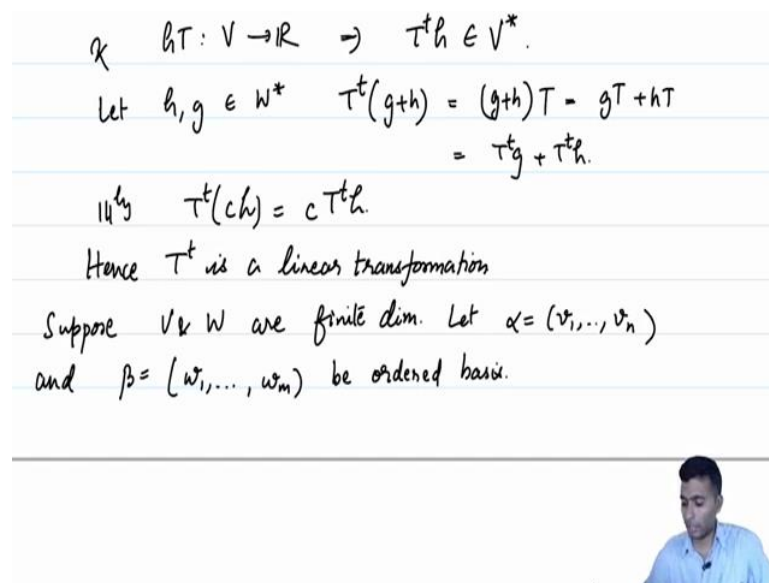 & hT : V → ℝ ⇒ Tᵗh ∈ V*.
Let h, g ∈ W* Tᵗ(g+h) = (g+h)T = gT + hT
= Tᵗg + Tᵗh.
|||ly Tᵗ(ch) = c Tᵗh.
Hence Tᵗ is a linear transformation
Suppose V & W are finite dim. Let α = (v₁,..,vₙ)
and β = (w₁,...,wₘ) be ordered basis.